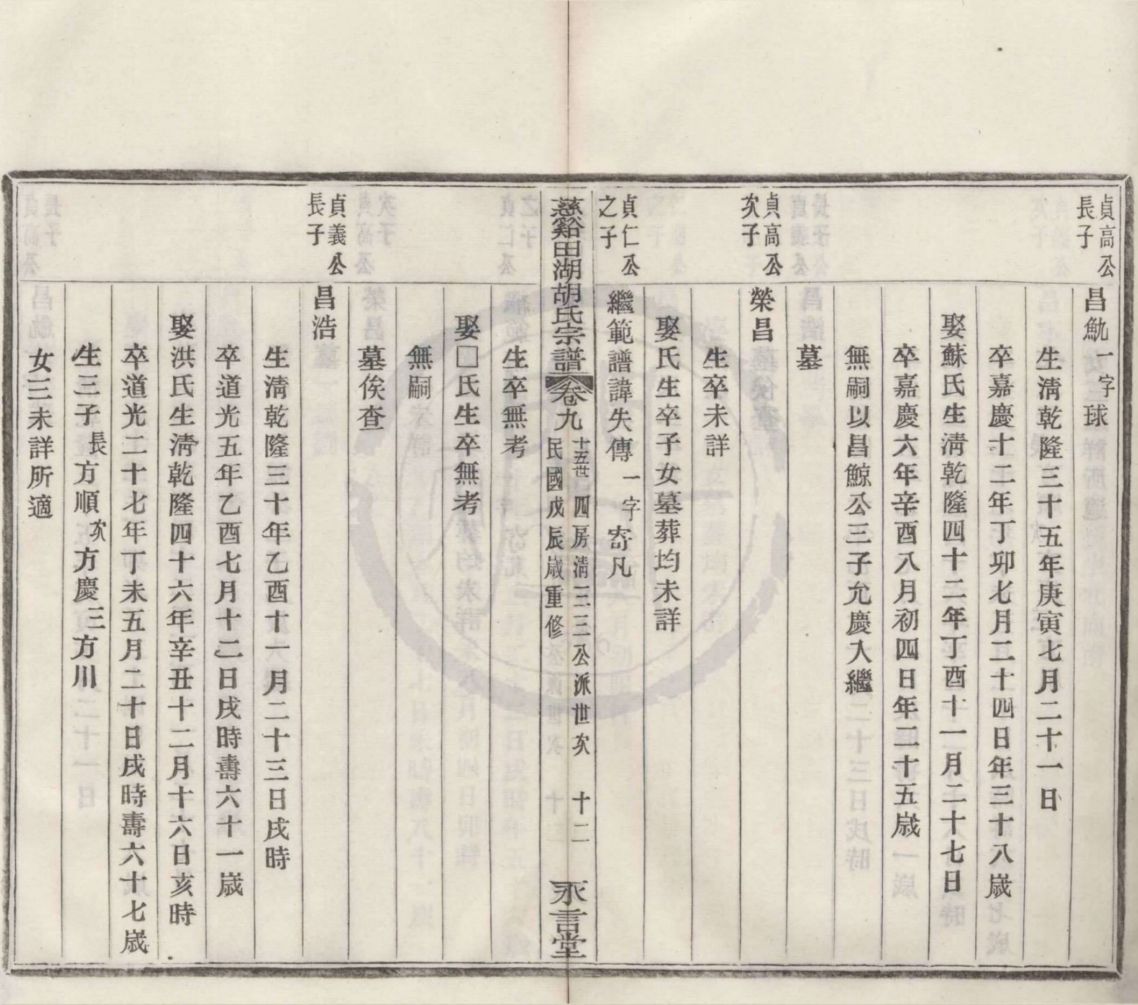 貞高公長子
昌魷一字球
生淸乾隆三十五年庚寅七月二十一日
卒嘉慶十二年丁卯七月二十四日年三十八歲
娶蘇氏生淸乾隆四十二年丁酉十一月二十七日
卒嘉慶六年辛酉八月初四日年二十五歲
無嗣以昌鯨公三子允慶入繼
墓
貞高公次子
榮昌
生卒未詳
娶氏生卒子女墓葬均未詳
貞仁公之子
繼範譜諱失傳一字寄凡
慈谿田湖胡氏宗譜
卷九
十五世四房淸三三公派世次 十二
民國戊辰歲重修
永言堂
生卒無考
娶□氏生卒無考
無嗣
墓俟查
貞義公長子
昌浩
生淸乾隆三十年乙酉十一月二十三日戌時
卒道光五年乙酉七月十二日戌時壽六十一歲
娶洪氏生淸乾隆四十六年辛丑十二月十六日亥時
卒道光二十七年丁未五月二十日戌時壽六十七歲
生三子長方順次方慶三方川
女三未詳所適